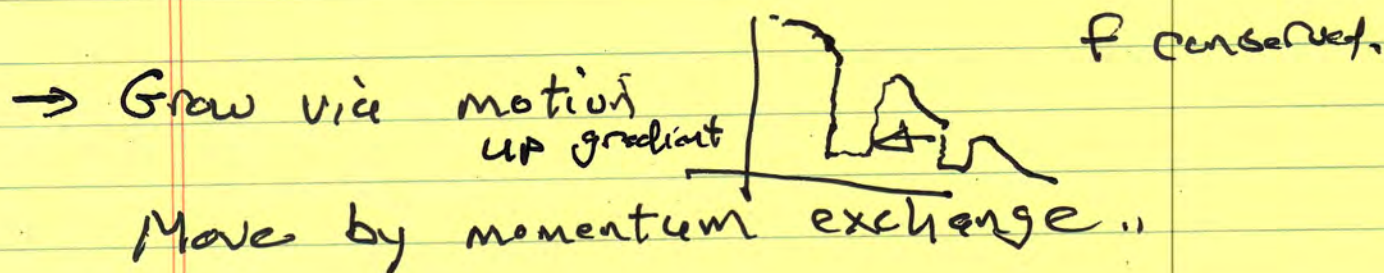 f conserved.
→ Grow via motion
up gradient
Move by momentum exchange..